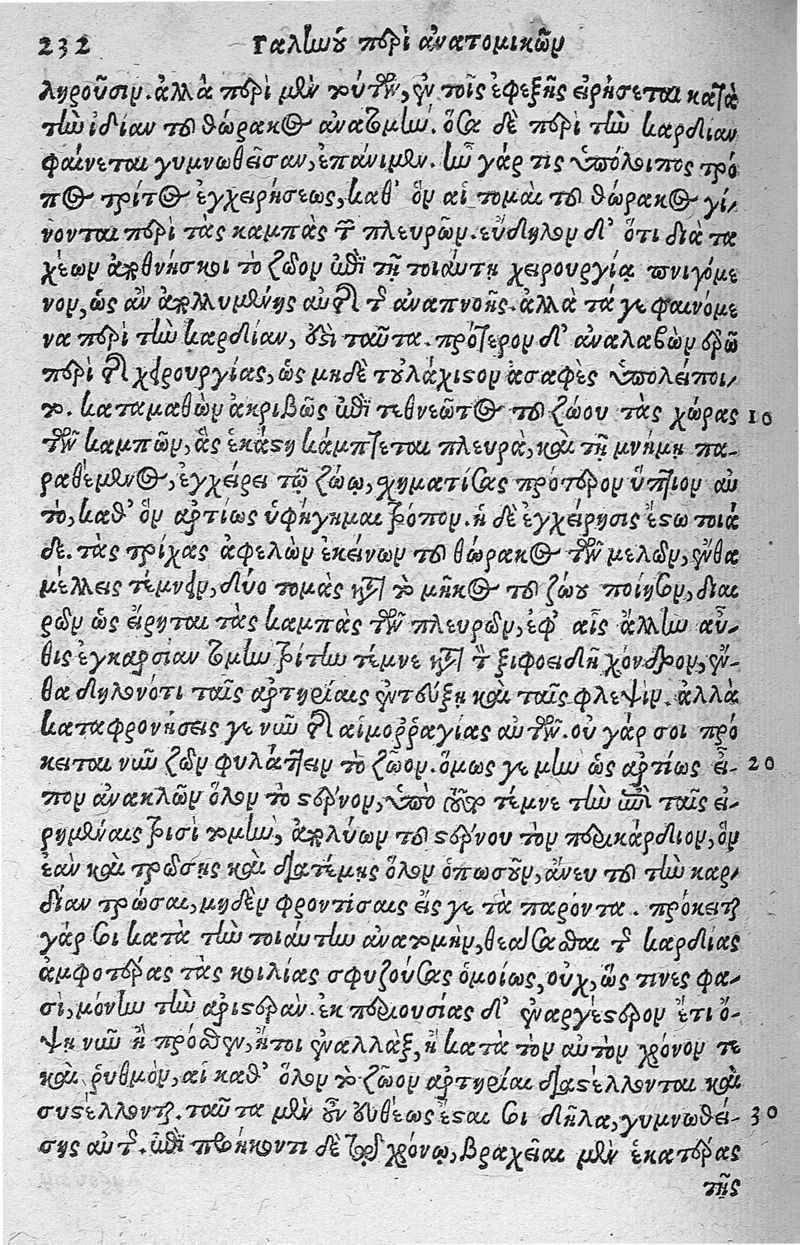 232 Γαληνοῦ περὶ ἀνατομικῶν
ληροῦσιν. ἀλλὰ περὶ μὲν τούτων, ἐν τοῖς ἐφεξῆς εἰρήσεται κατὰ
τὴν ἰδίαν τοῦ θώρακος ἀνατομήν. ὅσα δὲ περὶ τὴν καρδίαν
φαίνεται γυμνωθεῖσαν, ἐπάνιμεν. ἦν γάρ τις ὑπόλοιπος τρό
πος τρίτος ἐγχειρήσεως, καθ' ὃν αἱ τομαὶ τοῦ θώρακος γί-
νονται περὶ τὰς καμπὰς τῶν πλευρῶν. εὔδηλον δ' ὅτι διὰ τα
χέων ἀποθνήσκει τὸ ζῶον ἐπὶ τῇ τοιαύτῃ χειρουργίᾳ πνιγόμε
νον, ὡς ἂν ἀπολλυμένης αὐτῷ τῆς ἀναπνοῆς. ἀλλὰ τά γε φαινόμε
να περὶ τὴν καρδίαν, ἐστὶ ταῦτα. πρότερον δ' ἀναλαβὼν ἐρῶ
περὶ τῆς χειρουργίας, ὡς μηδὲ τοὐλάχιστον ἀσαφὲς ὑπολείποι-
το. καταμαθὼν ἀκριβῶς ἐπὶ τεθνεῶτος τοῦ ζώου τὰς χώρας 10
τῶν καμπῶν, ἃς ἑκάστη κάμπτεται πλευρὰ, καὶ τῇ μνήμῃ πα-
ραθέμενος, ἐγχείρει τῷ ζώῳ, σχηματίσας πρότερον ὕπτιον αὐ
τὸ, καθ' ὃν ἀρτίως ὑφήγημαι τρόπον. ἡ δὲ ἐγχείρησις ἔστω τοιά
δε. τὰς τρίχας ἀφελὼν ἐκείνων τοῦ θώρακος τῶν μελῶν, ἔνθα
μέλλεις τέμνειν, δύο τομὰς κατὰ τὸ μῆκος τοῦ ζώου ποίησον, διαι
ρῶν ὡς εἴρηται τὰς καμπὰς τῶν πλευρῶν, ἐφ' αἷς ἄλλην αὖ-
θις ἐγκαρσίαν τομὴν τρίτην τέμνε κατὰ τὸν ξιφοειδῆ χόνδρον, ἔν-
θα δηλονότι ταῖς ἀρτηρίαις ἐντεύξῃ καὶ ταῖς φλεψίν. ἀλλὰ
καταφρονήσεις γε νῦν τῆς αἱμοῤῥαγίας αὐτῶν. οὐ γάρ σοι πρό
κειται νῦν ζῶν φυλάττειν τὸ ζῶον. ὅμως γε μὴν ὡς ἀρτίως εἶ- 20
πον ἀνακλῶν ὅλον τὸ στέρνον, ὑπὸ τέμνε τὴν ἐπὶ ταῖς εἰ-
ρημέναις τρισὶ τομὴν, ἀπολύων τοῦ στέρνου τὸν περικάρδιον, ὃν
ἐὰν καὶ τρώσῃς καὶ διατέμῃς ὅλον ὁπωσοῦν, ἄνευ τοῦ τὴν καρ-
δίαν τρῶσαι, μηδὲν φροντίσαις εἴς γε τὰ παρόντα. πρόκειται
γάρ σοι κατὰ τὴν τοιαύτην ἀνατομὴν, θεάσασθαι τῆς καρδίας
ἀμφοτέρας τὰς κοιλίας σφυζούσας ὁμοίως, οὐχ, ὥς τινες φα-
σὶ, μόνην τὴν ἀριστεράν. ἐκ περιουσίας δ' ἐναργέστερον ἔτι ὄ-
ψῃ νῦν ἢ πρόσθεν, ἤτοι ἐναλλὰξ, ἢ κατὰ τὸν αὐτὸν χρόνον τε
καὶ ῥυθμὸν, αἱ καθ' ὅλον τὸ ζῶον ἀρτηρίαι διαστέλλονται καὶ
συστέλλονται. ταῦτα μὲν οὖν εὐθέως ἔσται σοι δῆλα, γυμνωθεί- 30
σης αὐτῆς. ἐπὶ προήκοντι δὲ τῷ χρόνῳ, βραχεῖαι μὲν ἑκατέρας
τῆς